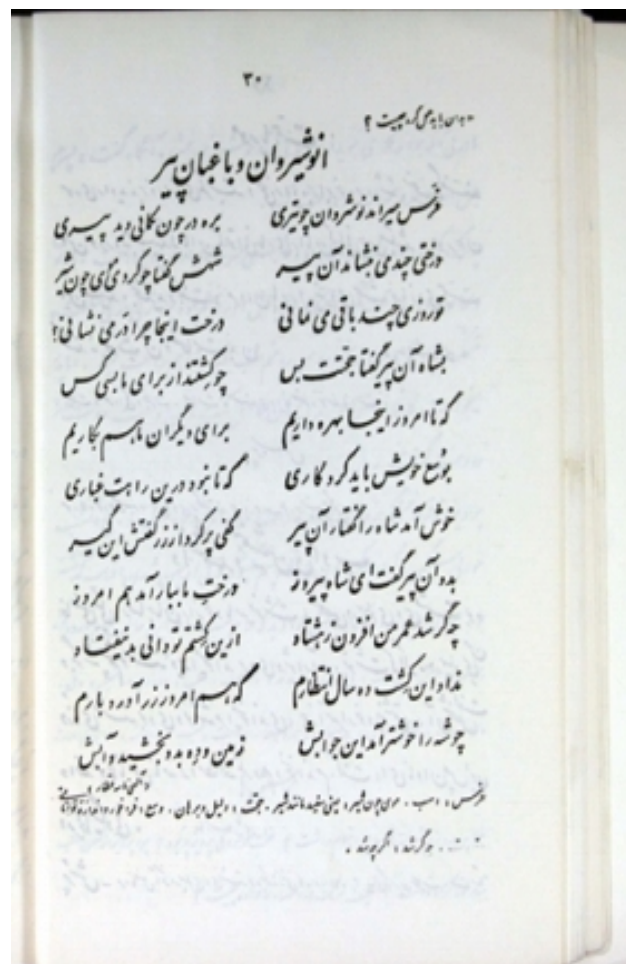 ۳۰
انوشیروان و باغبان پیر
فرس میراند نوشروان چو تیری بره در چون کمانی دید پیری
درختی چندی بنشاند آن پیر شهش گفتا چو کردی موی چون شیر
تو روزی چند باقی می نمانی درخت اینجا چرا در می نشانی؟
بشاه آن پیر گفتا حجت بس چو کشتند از برای ما بسی کس
که تا امروز اینجا بهره داریم برای دیگران ما هم بکاریم
بوسع خویش باید کرد کاری که تا نبود درین راهت غباری
خوش آمد شاه را گفتار آن پیر کفی پر کرد از زر گفتش این گیر
بدو آن پیر گفت ای شاه پیروز درخت ما ببار آمد هم امروز
چه گر شد عمر من افزون ز هشتاد ازین کشتم تو دانی بد نیفتاد
نداد این کشت ده سال انتظارم که هم امروز زر آورد بارم
چو شه را خوشتر آمد این جوابش زمین و ده بدو بخشید و آبش
فرس ، اسب . موی چون شیر ، یعنی سفید مانند شیر . حجت ، دلیل و برهان . وسع ،
چه گر شد ، اگر چه شد .